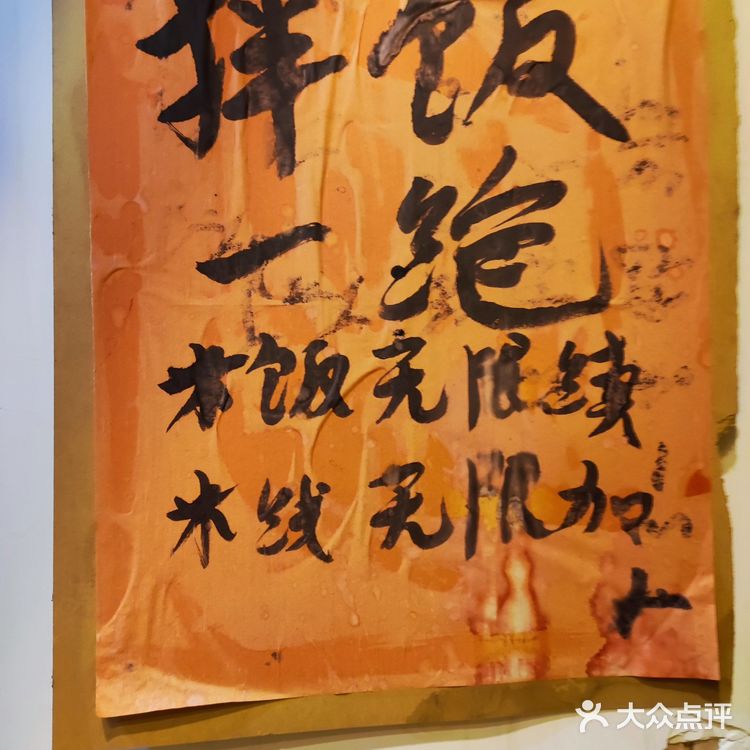 拌饭
一绝
米饭无限续
米线无限加
大众点评